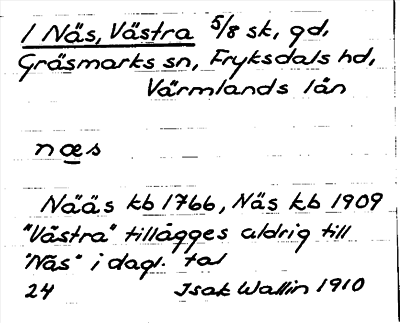 1 Näs, Västra 5/8 sk, gd,
Gräsmarks sn, Fryksdals hd,
Värmlands län
næs
Nääs kb 1766, Näs kb 1909
"Västra" tillägges aldrig till
"Näs" i dagl. tal
24 Isak Wallin 1910